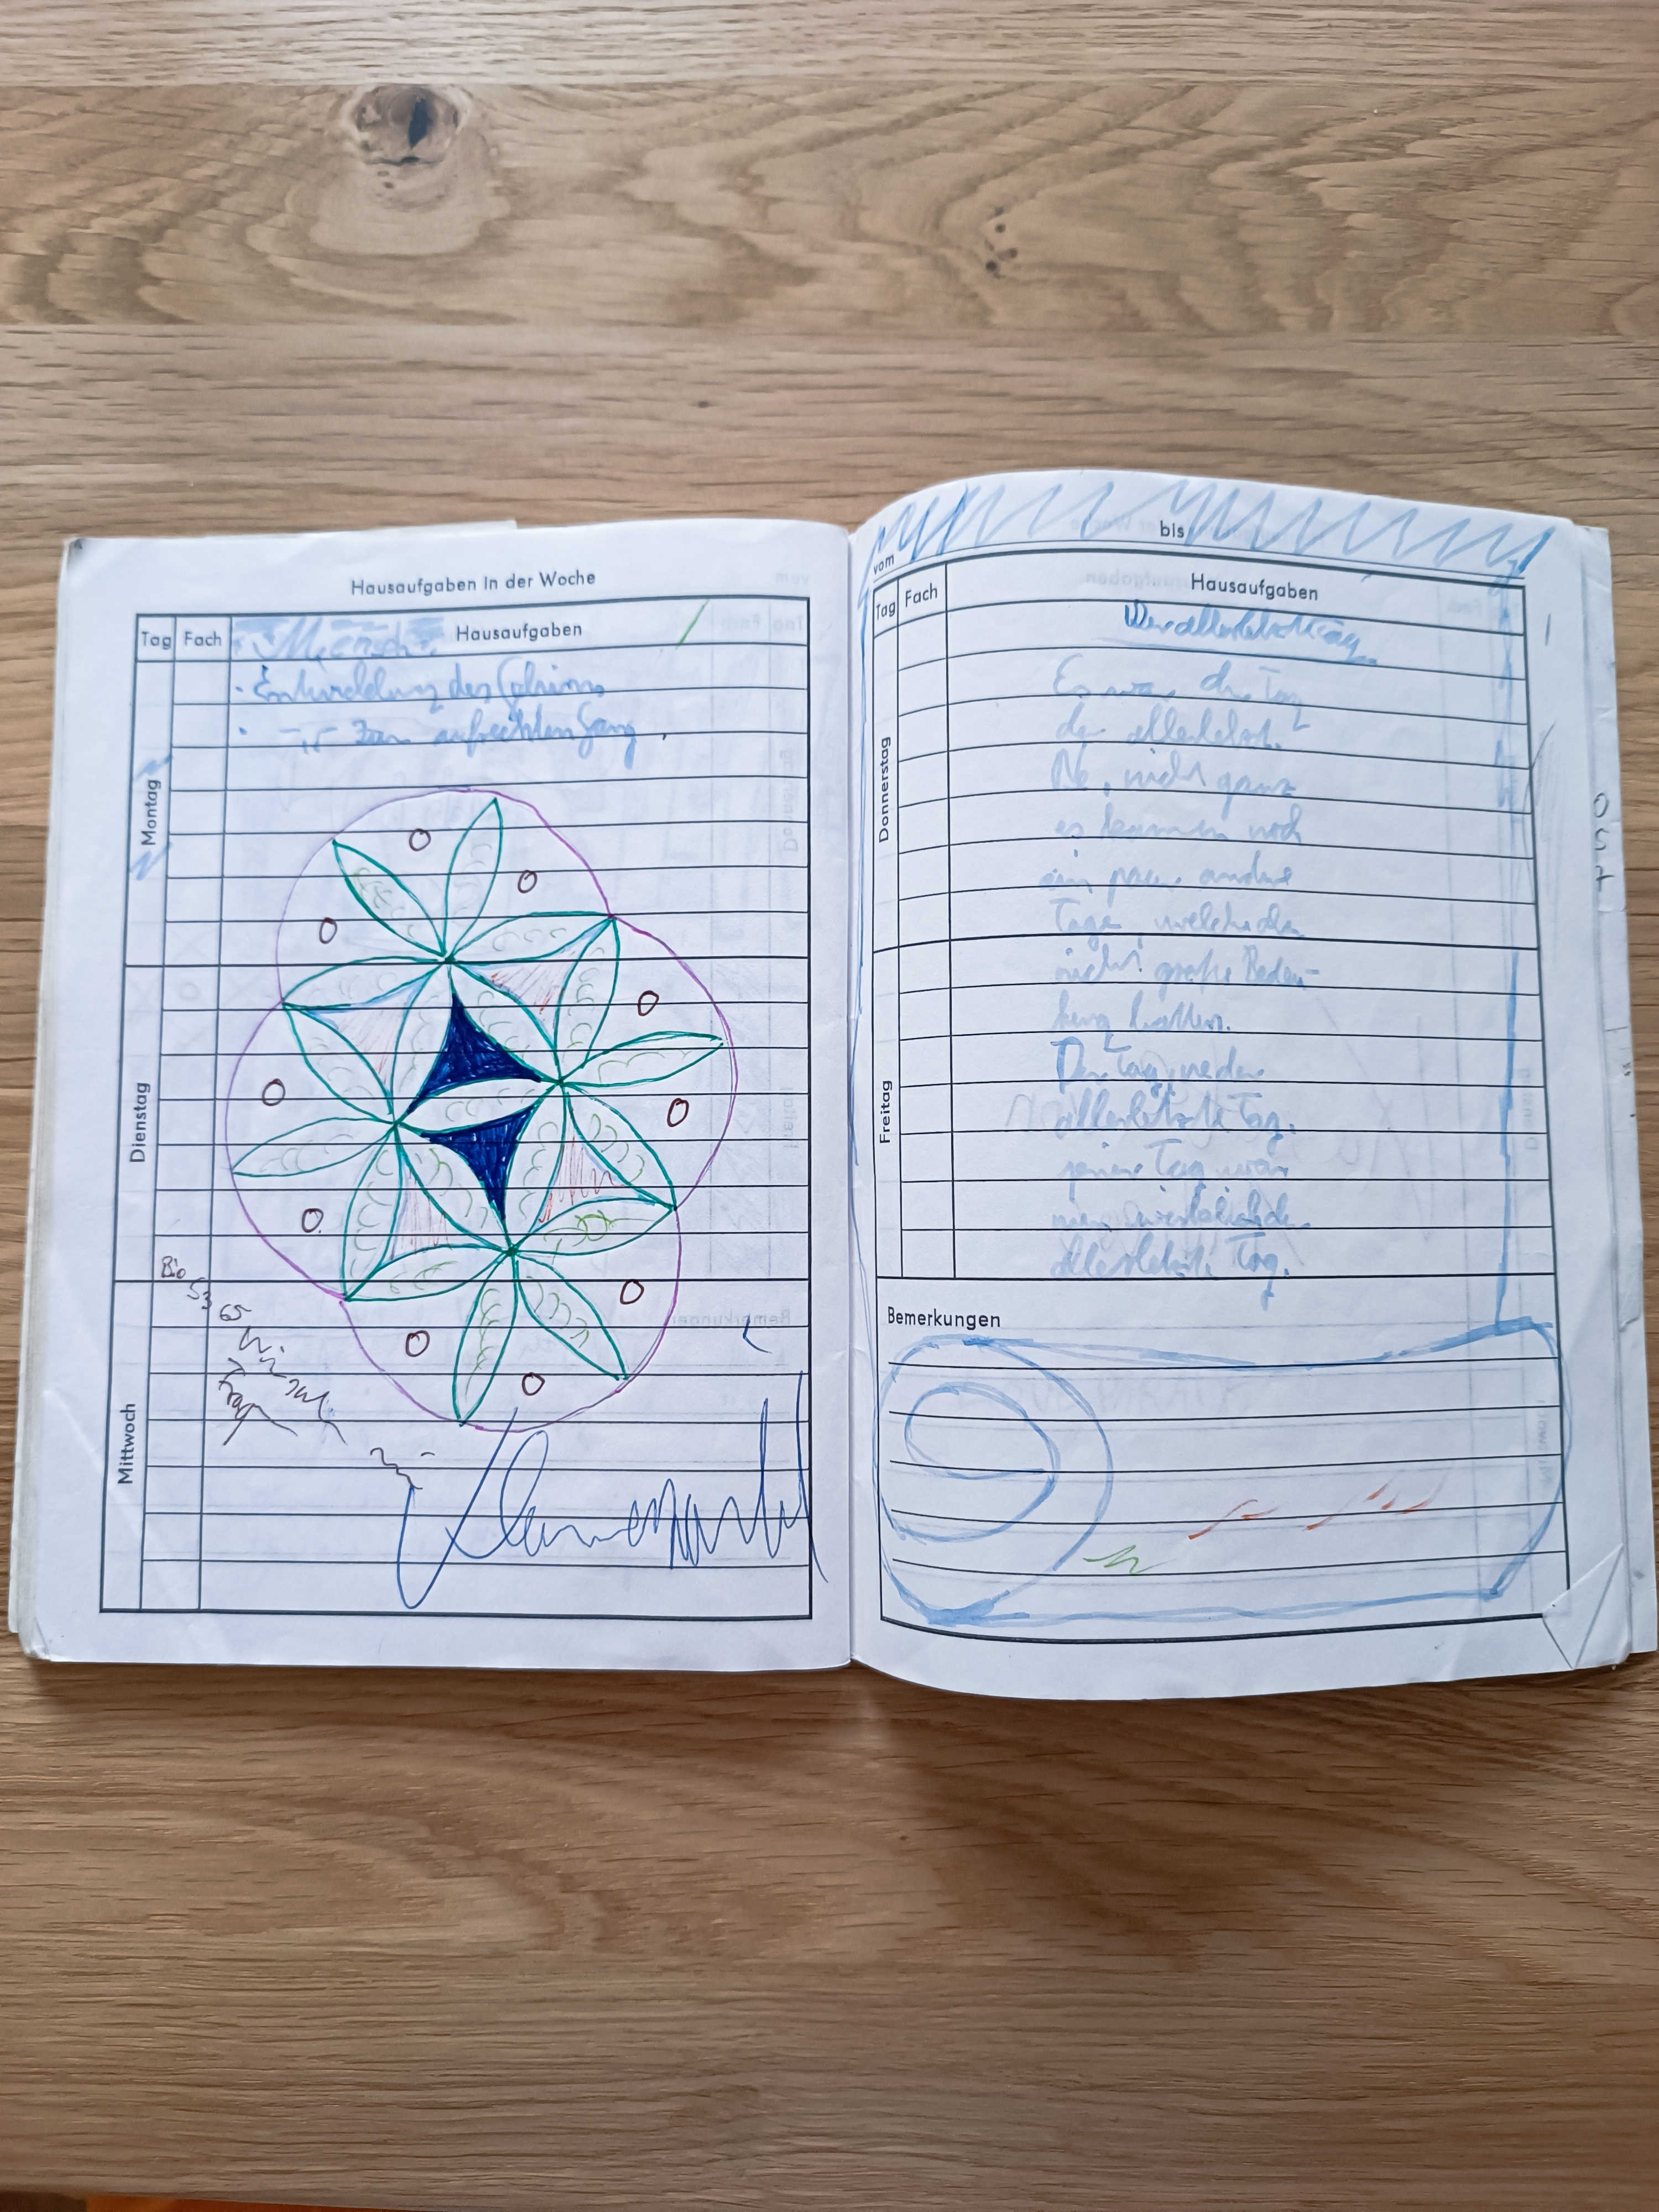 Hausaufgaben in der Woche
Tag Fach Hausaufgaben
Mensch
· Entwicklung des Gehirns
· zum aufrechten Gang
Montag
Dienstag
Mittwoch
Bio
53
65
vom bis
Tag Fach Hausaufgaben
Der allerletzte Tag
Es war der Tag
der allerletzte.
Ne, nicht ganz
es kamen noch
ein paar andere
Tage, welche aber
nicht große Bedeu-
tung hatten.
Der Tag, 
allerletzte Tag.
jener Tag war
nun 
allerletzte Tag.
Donnerstag
Freitag
Bemerkungen
out